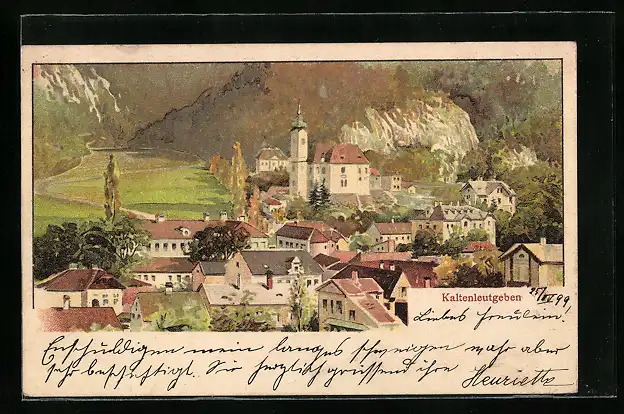 Kaltenleutgeben
25/IV 99
Liebes Freulein!
Entschuldigen mein langes schweigen wahr aber
sehr beschäftigt. Sie herzlich grüssend ihre
Henriette